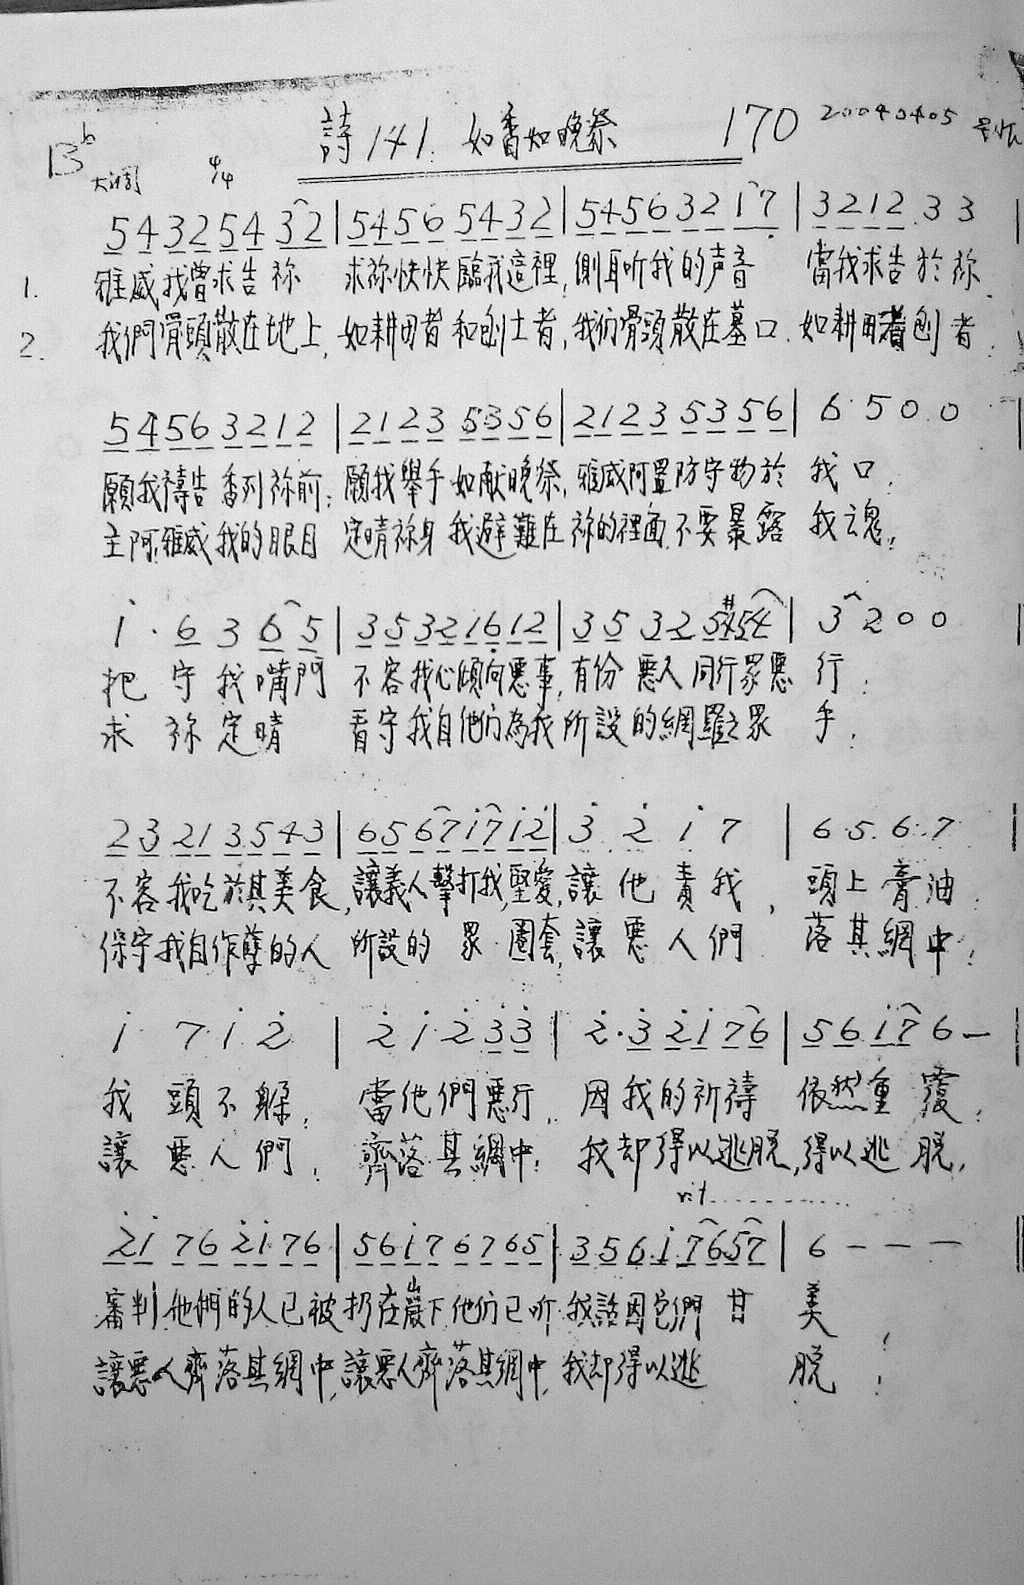 詩141. 如香如晚祭 170 20040405
B♭大調 4/4
5 4 3 2 5 4 3 2 | 5 4 5 6 5 4 3 2 | 5 4 5 6 3 2 1 7 | 3 2 1 2 . 3 3 |
1. 雅威我曾求告祢 求祢快快臨我這裡,側耳听我的声音 當我求告於祢.
2. 我們骨頭散在地上,如耕田者和刨土者,我们骨頭散在墓口.如耕田者刨者.
5 4 5 6 3 2 1 2 | 2 1 2 3 5 3 5 6 | 2 1 2 3 5 3 5 6 | 6 · 5 0 0
願我禱告香列祢前;願我舉手如献晚祭,雅威阿置防守物於 我口.
主阿,雅威我的眼目 定睛祢身我避難在祢的裡面.不要暴露 我魂;
i · 6 3 6 5 | 3 5 3 2 1 6 1 2 | 3 5 3 2 5 #4 5 4 | 3 2 0 0 |
把守我嘴門 不容我心傾向惡事,有份惡人同行眾惡 行;
求祢定睛 看守我自他们為我所設的網羅之眾 手;
2 3 2 1 3 5 4 3 | 6 5 6 7 i 7 i 2̇ | 3̇ 2̇ i 7 | 6 5 6 7 |
不容我吃於其美食,讓義人擊打我,堅愛,讓他責我,頭上膏油.
保守我自作孽的人 所設的眾圈套,讓惡人們 落其網中;
i 7 i 2̇ | 2̇ i 2̇ 3̇ 3̇ | 2̇ · 3̇ 2̇ i 7 6 | 5 6 i 7 6 — |
我頭不躲; 當他們惡行.因我的祈禱 依然重覆;
讓惡人們; 齊落其網中; 我却得以逃脫,得以逃脫,
rit..........
2̇ i 7 6 2̇ i 7 6 | 5 6 i 7 6 7 6 5 | 3 5 6 i 7 6 5 7 | 6 — — — ||
審判他們的人已被扔在巖下他们已听我話因它們甘 美;
讓惡人齊落其網中,讓惡人齊落其網中,我却得以逃 脫;